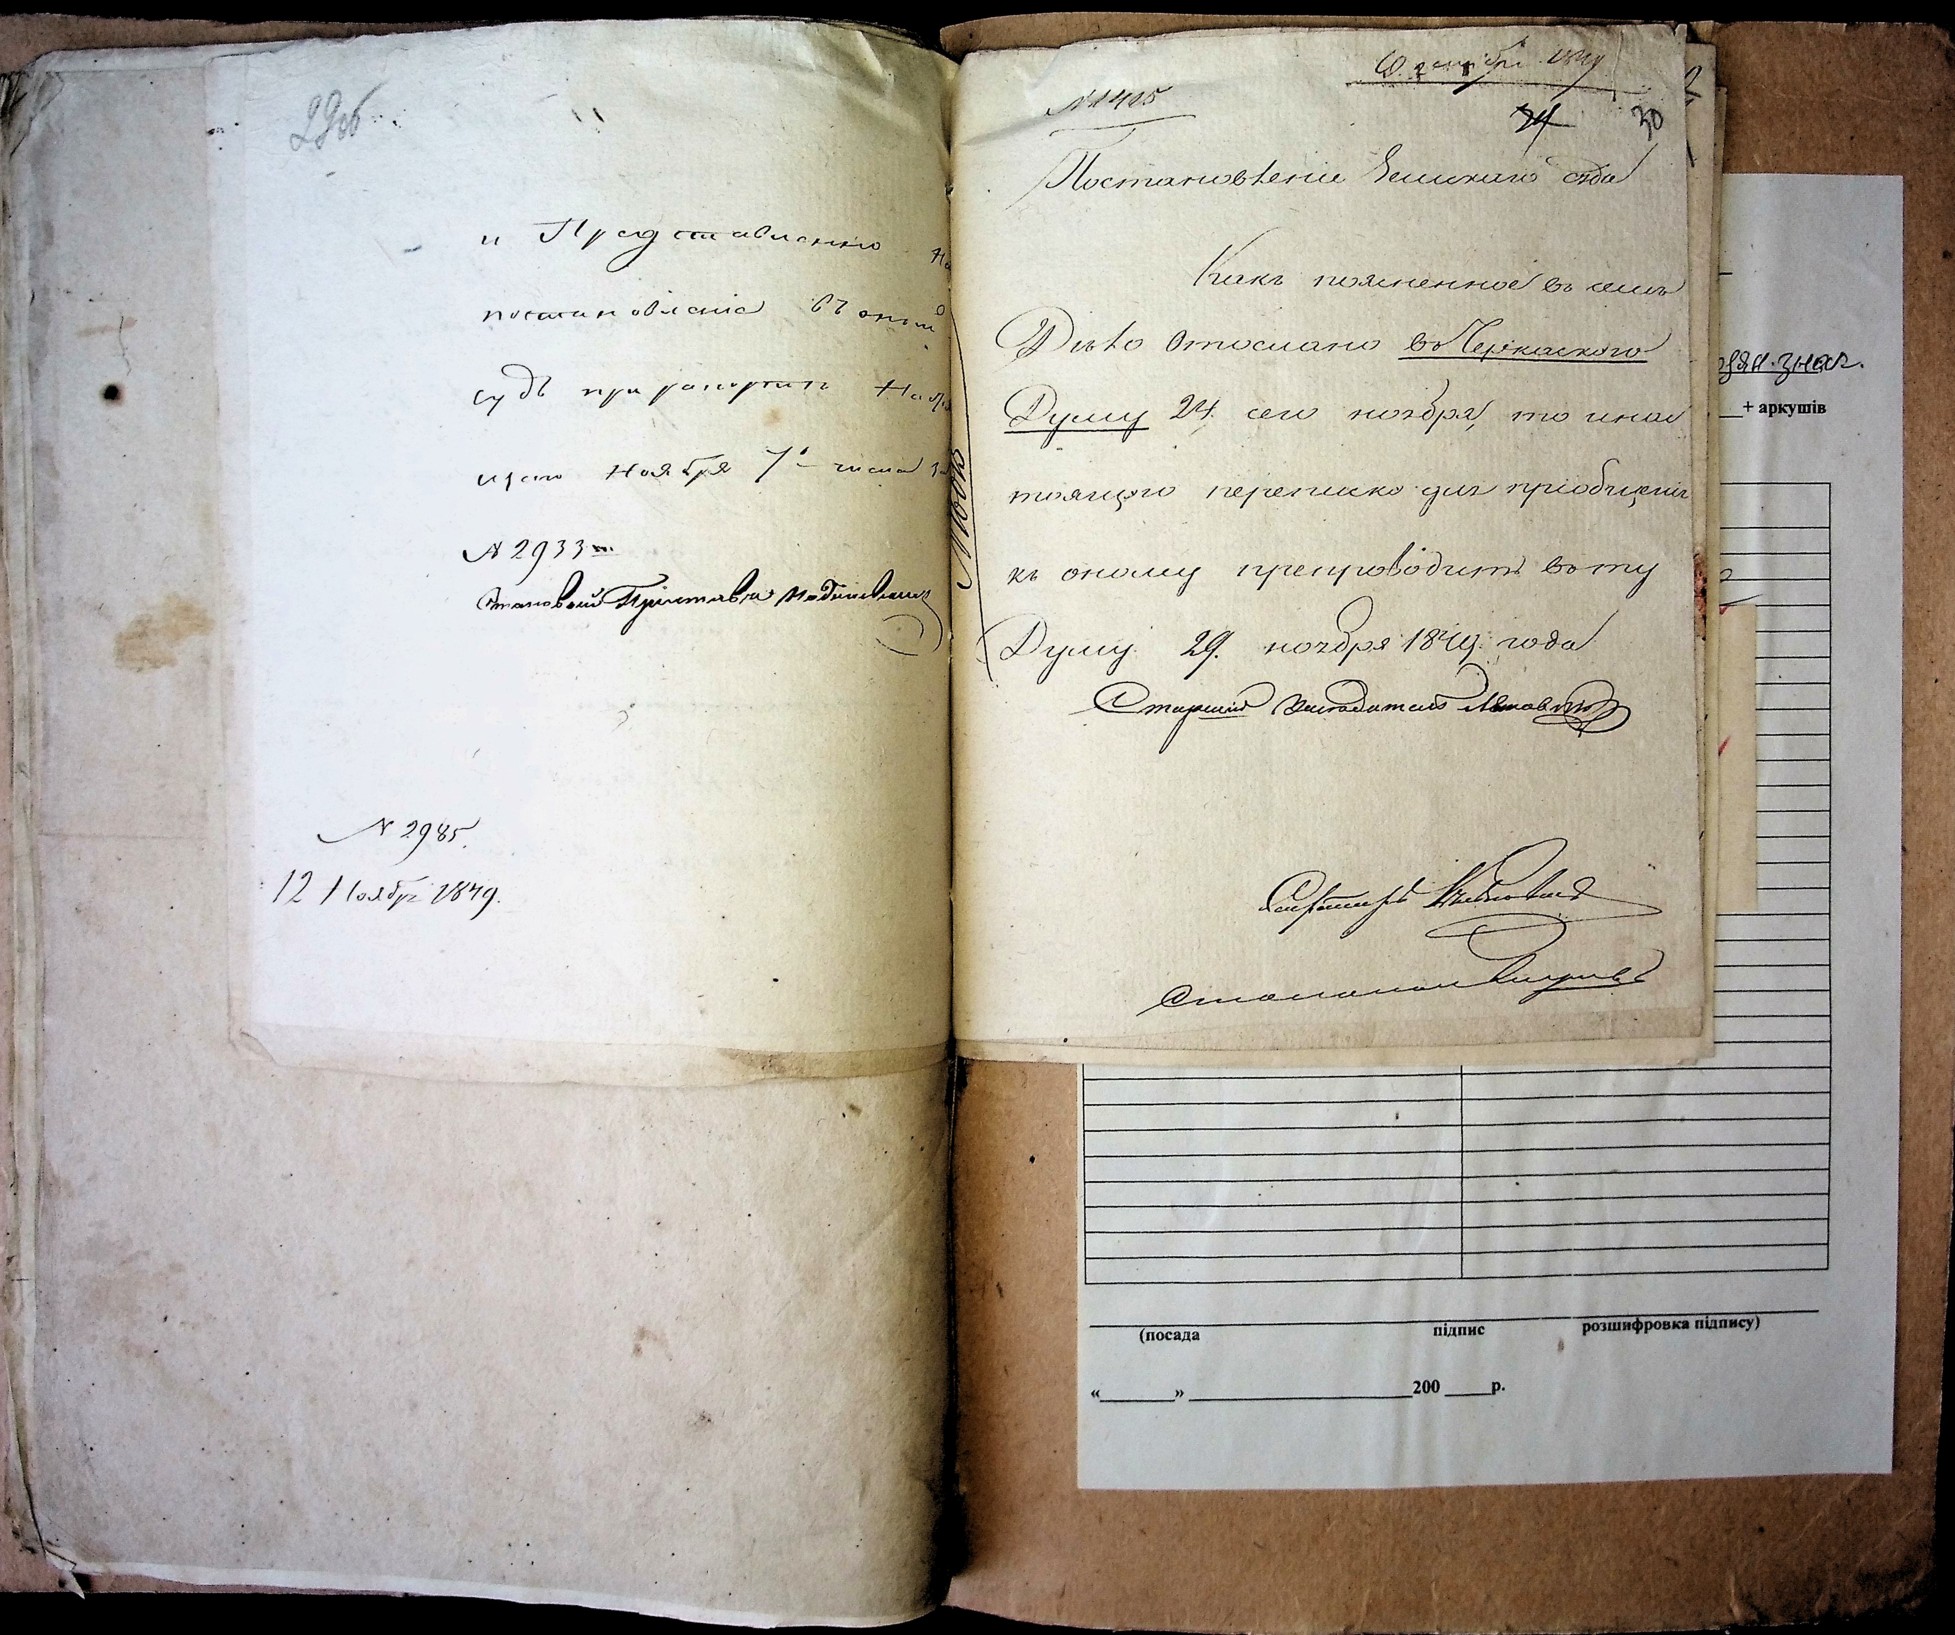 29об
и Представлено на
постановленіе въ оный
судъ при рапортѣ
Ноября 7го числа за
№ 2933м.
Становой Приставъ
№ 2985.
12 Ноября 1849.
№ 1415
декабря 1849
30
Постановленіе Земскаго суда
Какъ поясненное въ семъ
Дѣло Отослано въ Черкаского
Думу 24 сего ноября, то и нас
тоящую переписко для пріобщенія
къ оному препроводить въ ту
Думу. 29. ноября 1849. года
Старшій Засѣдатель
Секретарь
Столоначальникъ
+ аркушів
(посада підпис розшифровка підпису)
«______» __________________200 ____р.